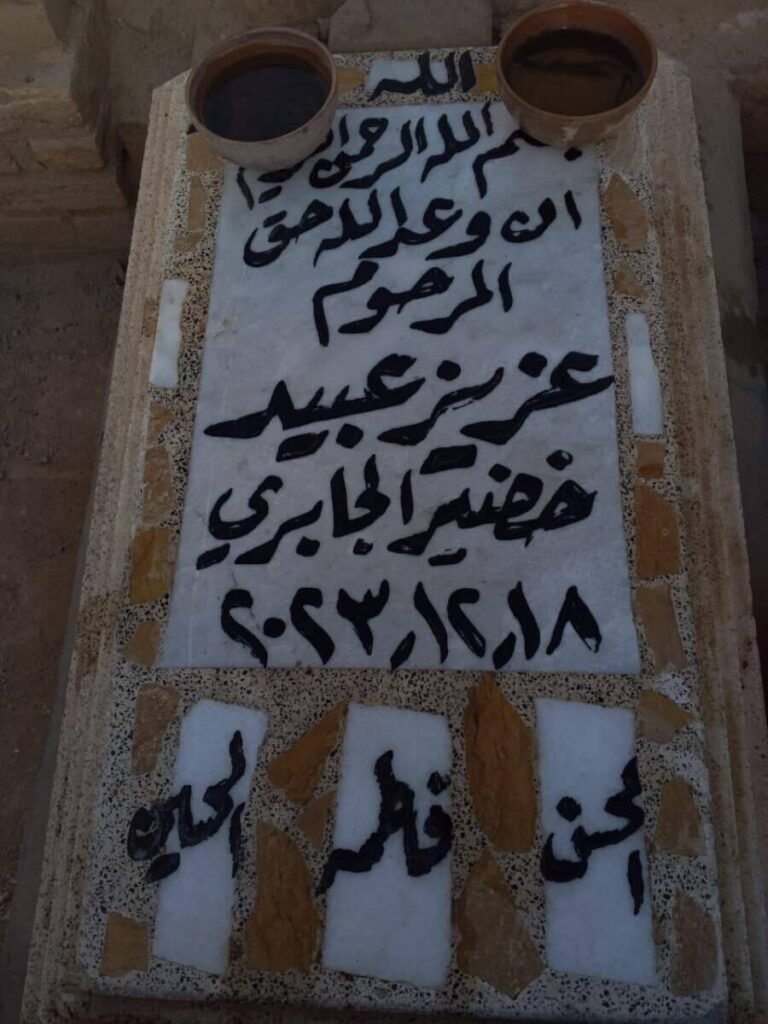 الله
بسم الله الرحمن الرحيم
ان وعد الله حق
المرحوم
عزيز عبيد
خضير الجابري
٢٠٢٣,١٢,١٨
الحسن فاطمه الحسين